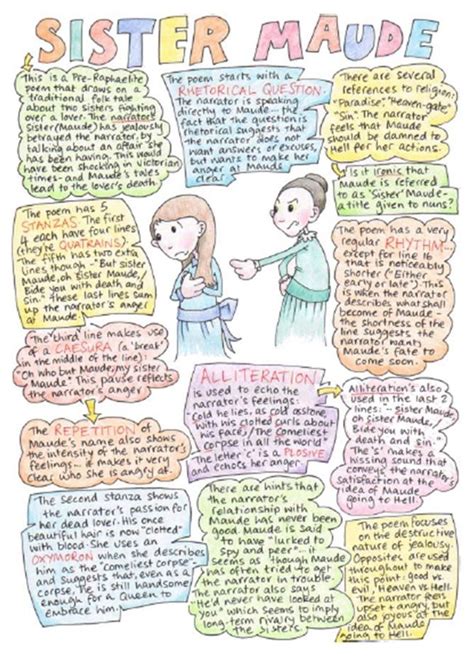 SISTER MAUDE
This is a Pre-Raphaelite
poem that draws on a
traditional folk tale
about two sisters fighting
over a lover. The narrator's
sister (Maude) has jealously
betrayed the narrator by
talking about an affair she
has been having. This would
have been shocking in Victorian
times- and Maude's tales
lead to the lover's death.
The poem starts with a
RHETORICAL QUESTION.
The narrator is speaking
directly to Maude... the
fact that the question is
rhetorical suggests that
the narrator does not
want answers or excuses,
but wants to make her
anger at Maude
clear.
There are several
references to religion:
"Paradise", "Heaven-gate",
"Sin". The narrator
feels that Maude
should be damned to
Hell for her actions.
Is it ironic that
Maude is referred
to as 'Sister' Maude-
a title given to nuns?
The poem has 5
STANZAS. The first
4 each have four lines
(they're QUATRAINS).
The fifth has two extra
lines though - "But sister
Maude, oh Sister Maude,/
Bide you with death and
sin." - these last lines sum
up the narrator's anger
at Maude.
The poem has a very
regular RHYTHM...
except for line 16
that is noticeably
shorter ("Either
early or late"). This
is when the narrator
describes what shall
become of Maude -
the shortness of the
line suggests the
narrator wants
Maude's fate to
come soon.
The third line makes use
of a CAESURA (a 'break'
in the middle of the line):
"Oh who but Maude, my sister
Maude." This pause reflects
the narrator's anger
ALLITERATION
is used to echo the
narrator's feelings:
"Cold he lies, as cold as stone,
with his clotted curls about
his face,/The comeliest
corpse in all the world"
The letter 'c' is a PLOSIVE
and echoes her anger
Alliteration's also
used in the last 2
lines: "- sister Maude,
oh sister Maude,
Bide you with
death and sin."
The 's' makes a
hissing sound that
conveys the narrator's
satisfaction at the
idea of Maude
going to Hell.
The REPETITION of
Maude's name also shows
the intensity of the narrator's
feelings... it makes it very
clear who she is angry at.
The second stanza shows
the narrator's passion for
her dead lover. His once
beautiful hair is now "clotted"
with blood. She uses an
OXYMORON when she describes
him as the "comeliest corpse"-
and suggests that, even as a
corpse, he is still handsome
enough for a Queen to
embrace him.
There are hints that
the narrator's
relationship with
Maude has never been
good. Maude is said
to have "lurked to
spy and peer"... it
seems as though Maude
has often tried to get
the narrator in trouble.
The narrator also says
"He'd never have looked at
you" which seems to imply
long-term rivalry between
the sisters.
The poem focuses
on the destructive
nature of jealousy.
Opposites are used
throughout to make
this point: good vs.
evil, Heaven vs. Hell.
The narrator feels
upset + angry, but
also joyous at the
idea of Maude
going to Hell.